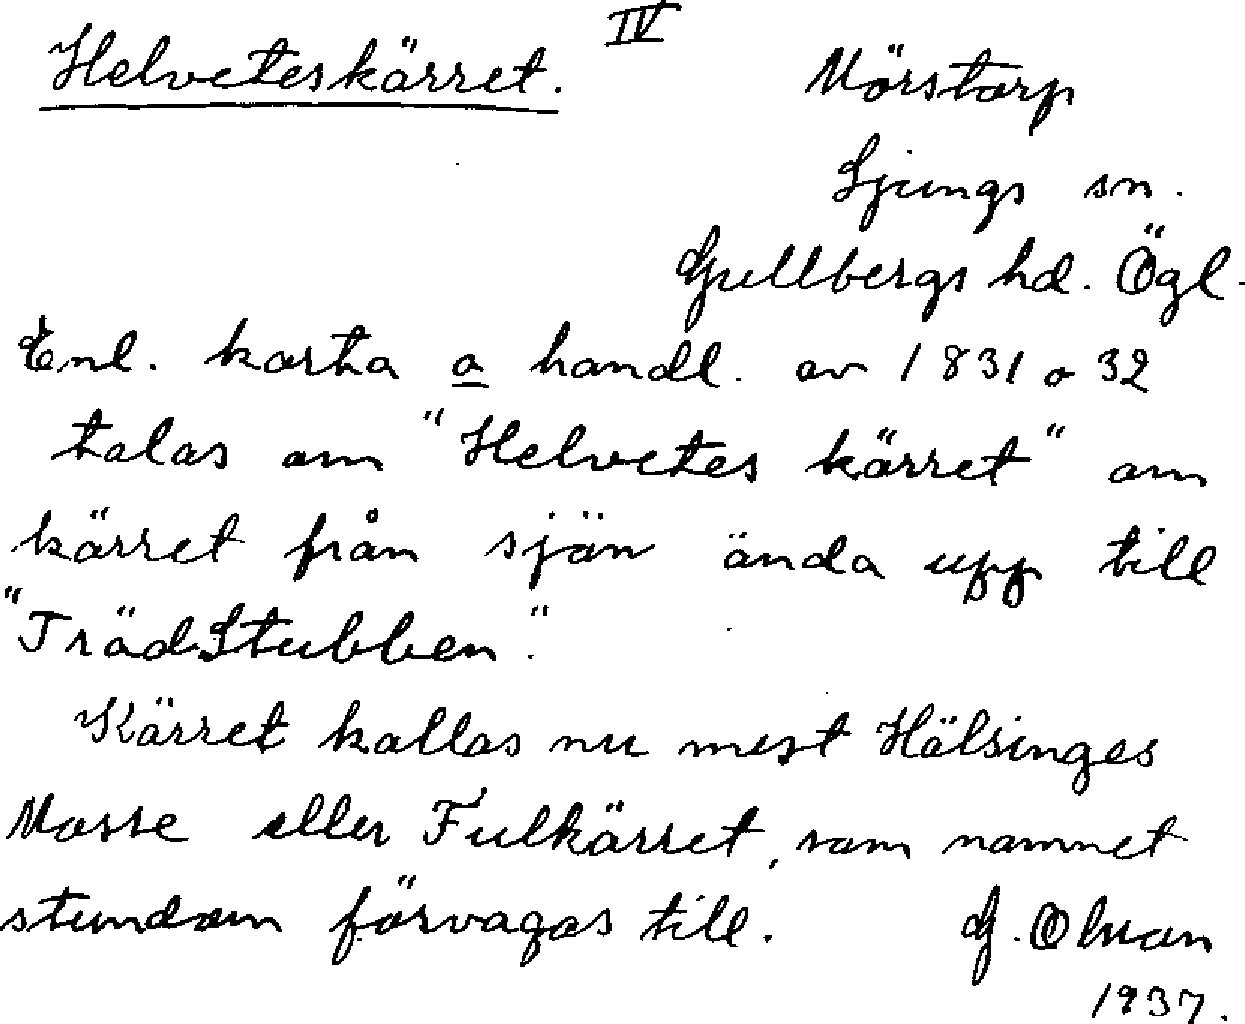 IV
Helveteskärret.
Mörstorp
Ljungs sn.
Gullbergs hd. Ögl.
Enl. karta o handl. av 1831 o 32
talas om "Helvetes kärret" om
kärret från sjön ända upp till
"TrädStubben".
Kärret kallas nu mest Hälsinges
Mosse eller Fulkärret, som namnet
stundom förvagas till.
G. Olson
1937.